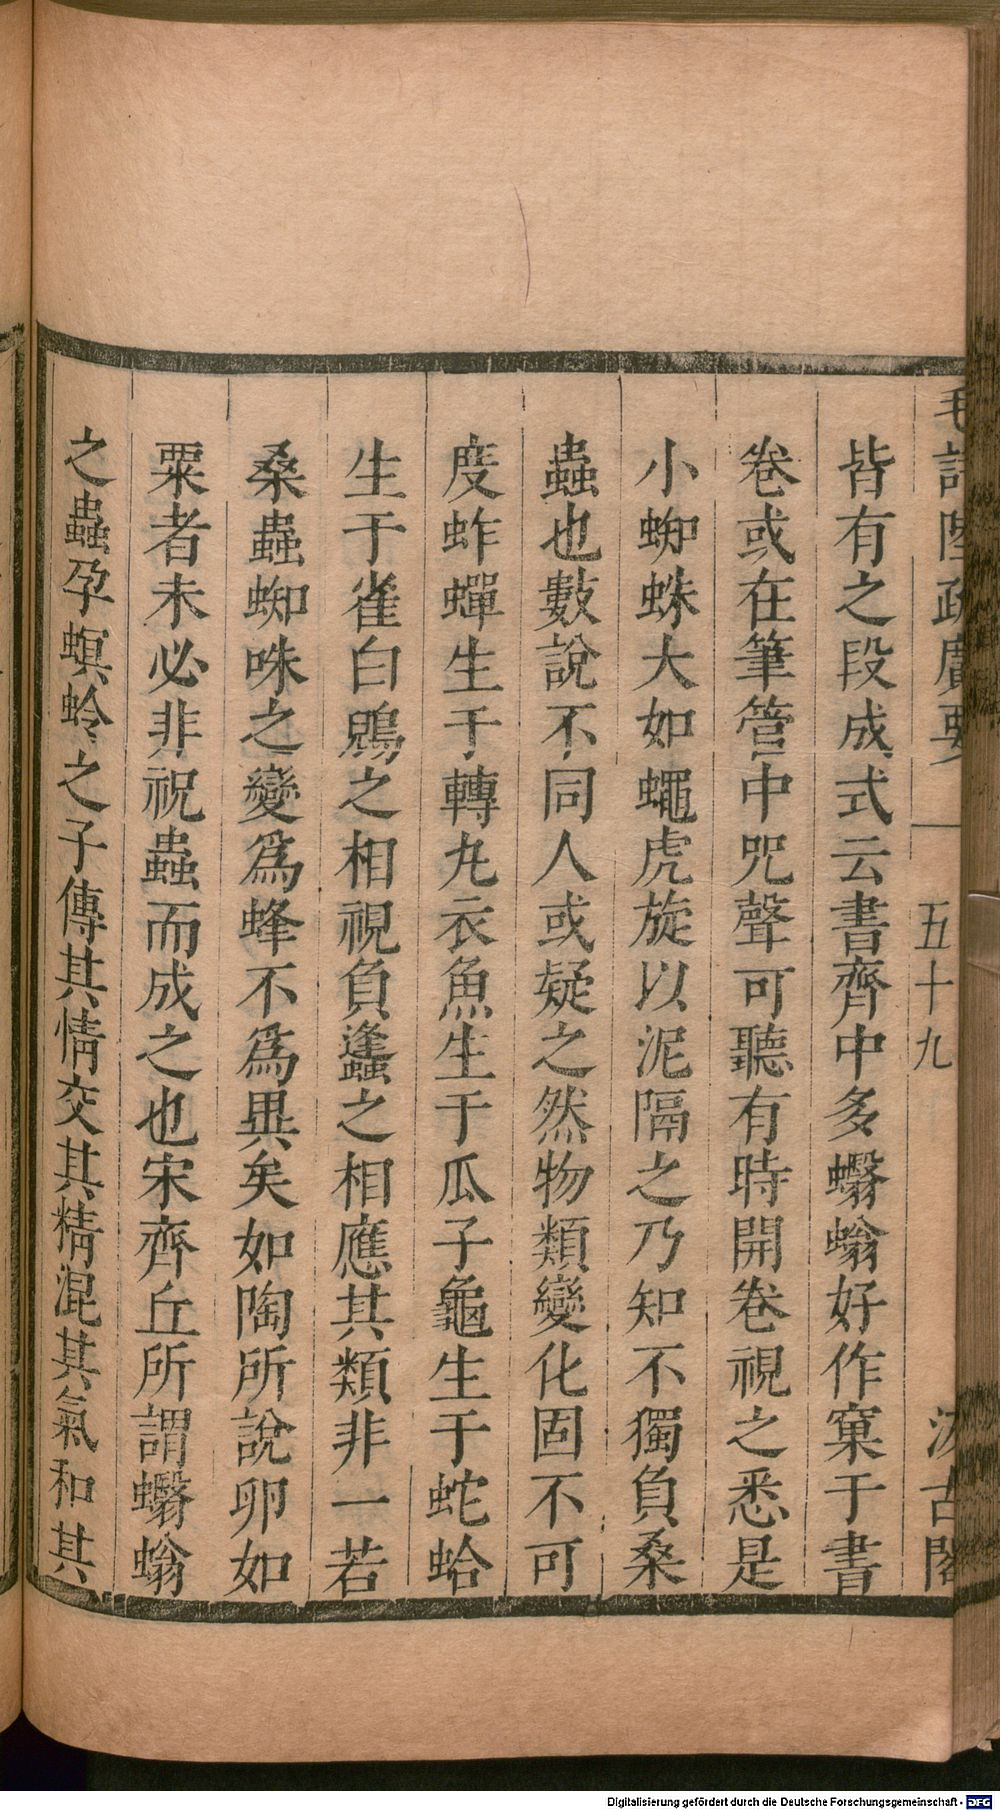 毛詩陸疏廣要
五十九
汲古閣
皆有之段成式云書齊中多蠮螉好作窠于書
卷或在筆管中咒聲可聽有時開卷視之悉是
小蜘蛛大如蠅虎旋以泥隔之乃知不獨負桑
蟲也數說不同人或疑之然物類變化固不可
度蚱蟬生于轉丸衣魚生于瓜子龜生于蛇蛤
生于雀白鶂之相視負蠭之相應其類非一若
桑蟲蜘咮之變爲蜂不爲異矣如陶所說卵如
粟者未必非祝蟲而成之也宋齊丘所謂蠮螉
之蟲孕螟蛉之子傳其情交其精混其氣和其
Digitalisierung gefördert durch die Deutsche Forschungsgemeinschaft - DFG